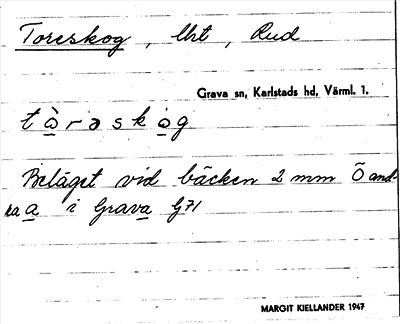 Toreskog, Uht, Rud
Grava sn, Karlstads hd, Värml. 1.
tò̱rəsko̱g
Beläget vid bäcken 2 mm Ö and-
ra a̲ i Grava̲ G71
MARGIT KIELLANDER 1947